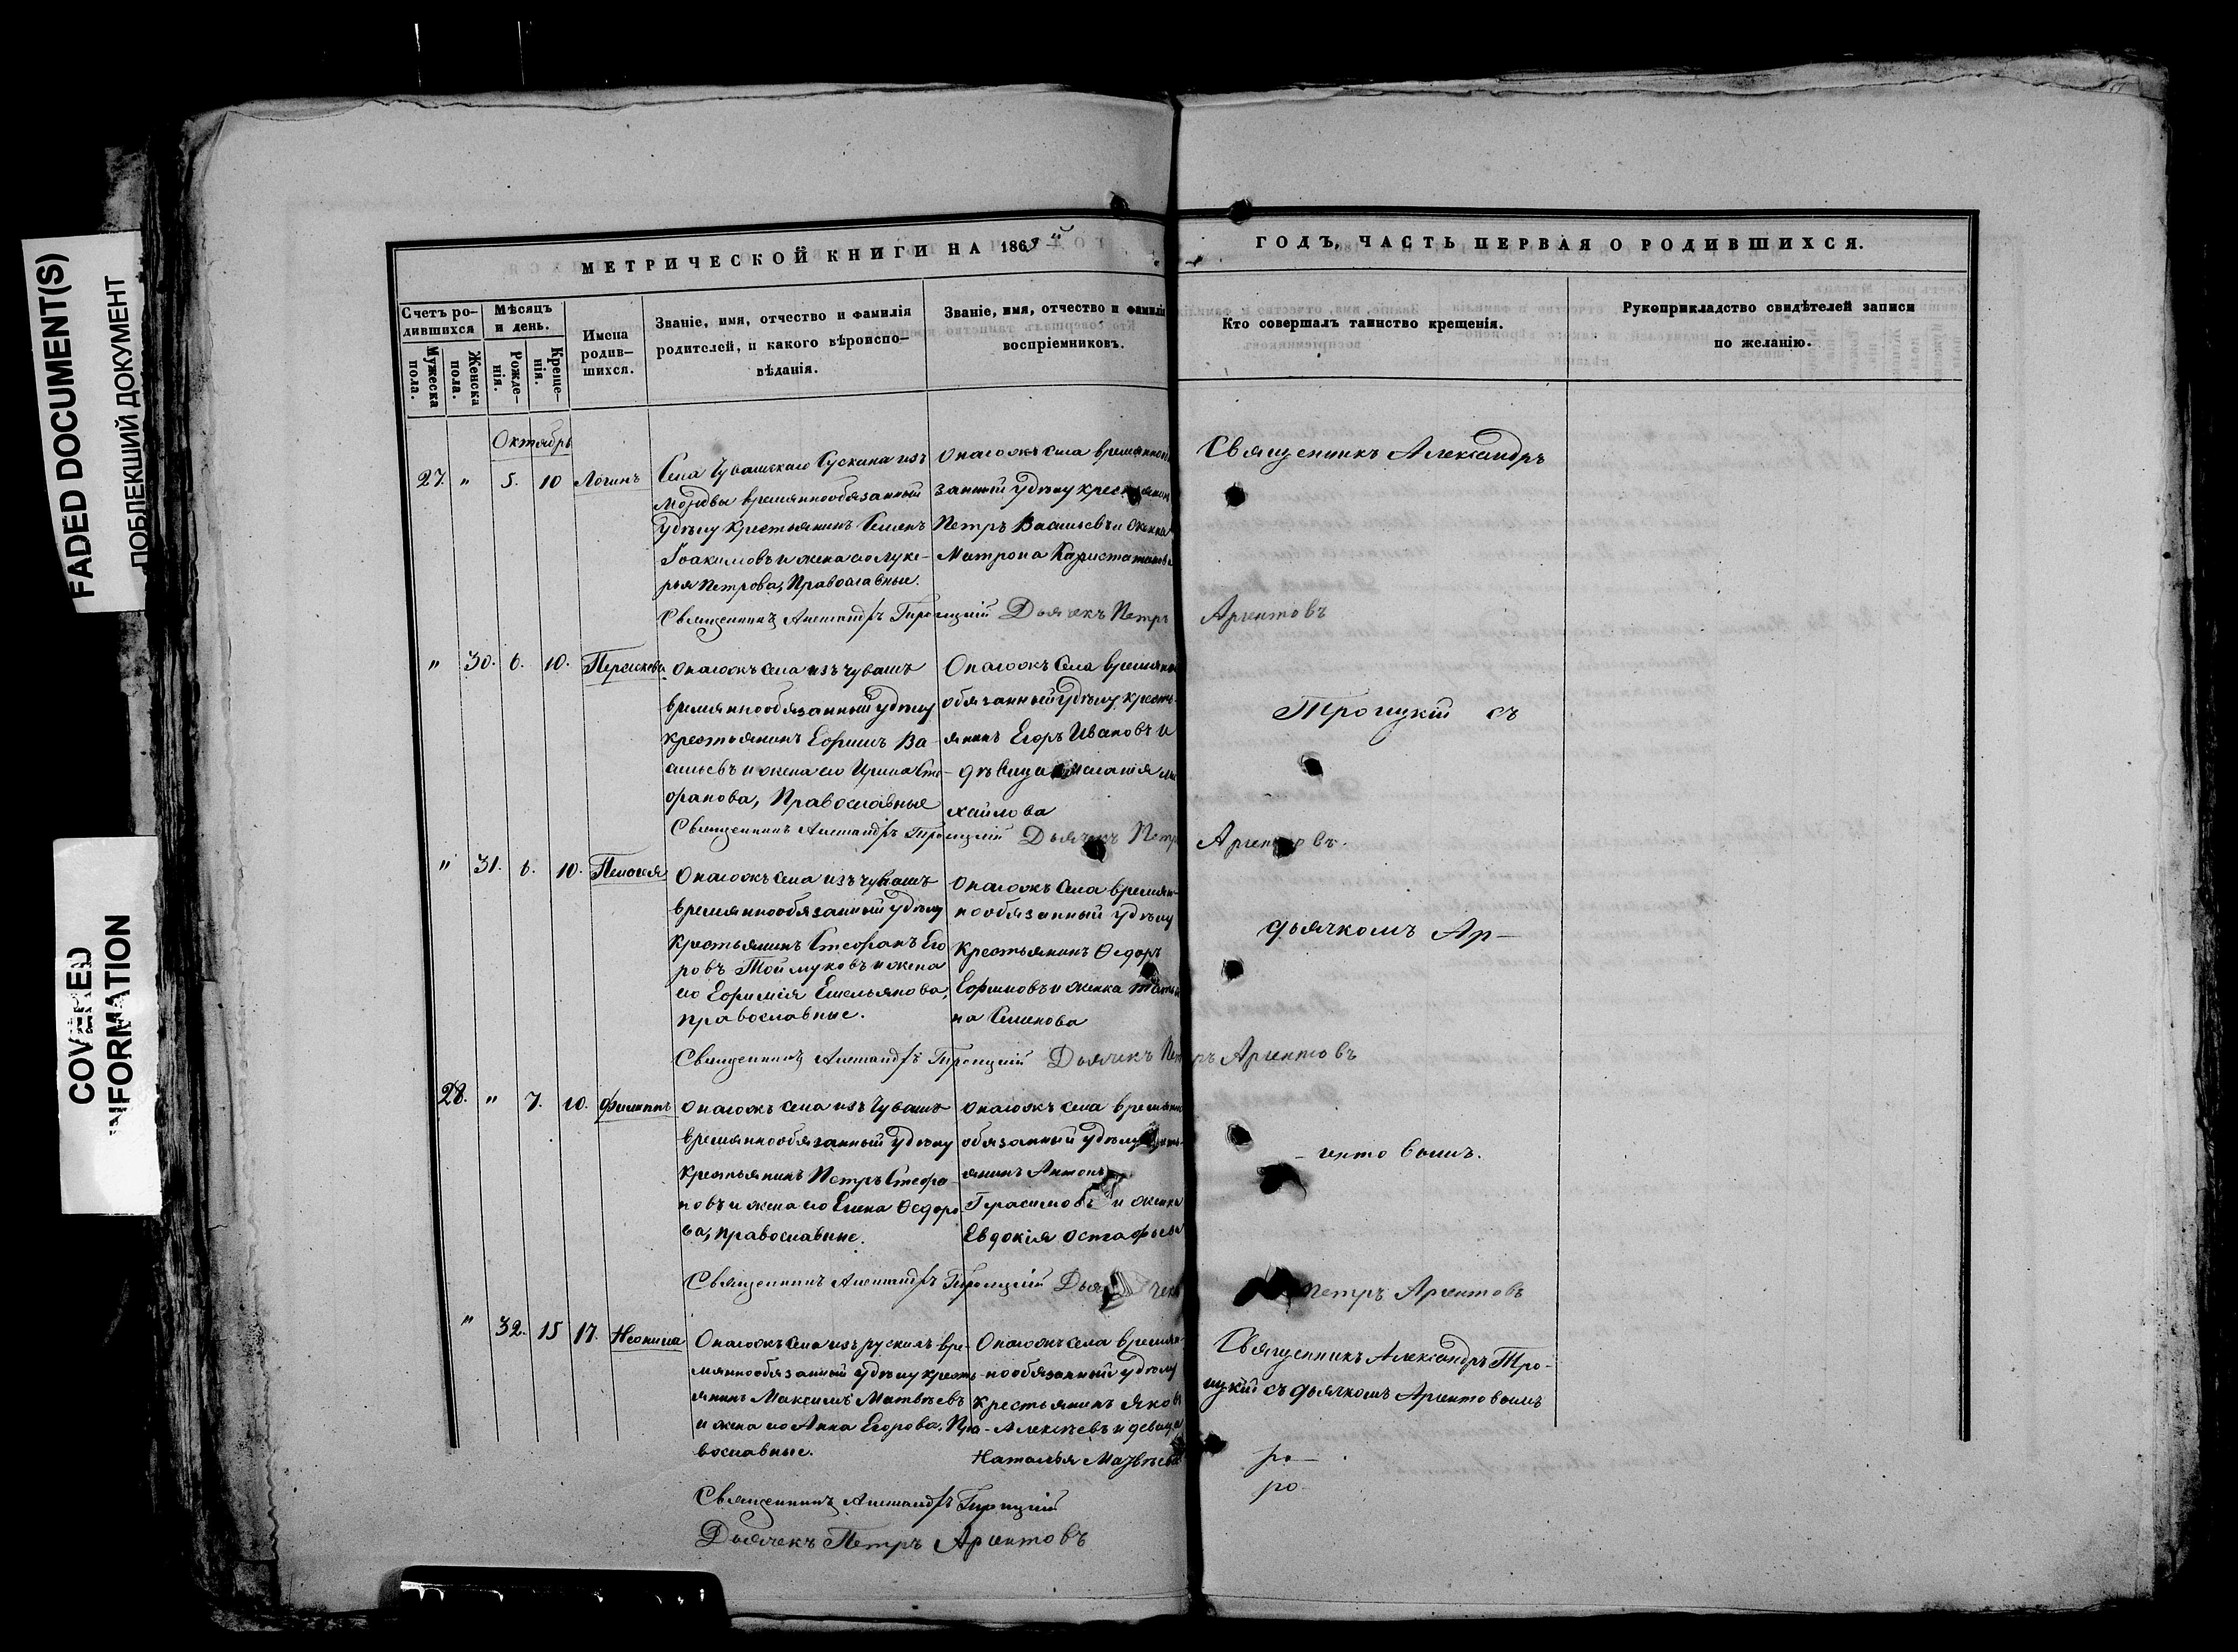 FADED DOCUMENT(S)
ПОБЛЕКШИЙ ДОКУМЕНТ
COVERED
INFORMATION
МЕТРИЧЕСКОЙ КНИГИ НА 1869й
ГОДЪ, ЧАСТЬ ПЕРВАЯ О РОДИВШИХСЯ.
Счетъ ро-
дившихся
Мужеска
пола.
Женска
пола.
Мѣсяцъ
и день.
Рожде-
нія.
Креще-
нія.
Имена
родив-
шихся.
Званіе, имя, отчество и фамилія
родителей, и какого вѣроиспо-
вѣданія.
Званіе, имя, отчество и фамилія
воспріемниковъ.
Кто совершалъ таинство крещенія.
Рукоприкладство свидѣтелей записи
по желанію.
Октябрь
27. " 5. 10 Логинъ
Села Чувашскаго Сускана изъ
Мордвы времяннообязанный
удѣлу крестьянинъ Семенъ
Іоакимовъ и жена его Луке-
рья Петрова, Православные.
Онагожъ села
занный удѣлу крестьянинъ
Петръ Васильевъ и
Матрона
Священникъ Александръ
Священникъ Александръ Троицкій Дьячекъ Петръ Аргентовъ
" 30. 6. 10. Параскева
Онагожъ села изъ чувашъ
времяннообязанный удѣлу
крестьянинъ Ефимъ Ва-
сильевъ и жена его Ирина Сте-
фанова, Православные
Онагожъ села времянно
обязанный удѣлу кресть-
янинъ Егоръ Ивановъ и
дѣвица Ми
хайлова
Троицкій съ
Священникъ Александръ Троицкій Дьячекъ Петръ Аргентовъ.
" 31. 6. 10. Пелагея
Онагожъ села изъ чувашъ
времяннообязанный удѣлу
крестьянинъ Стефанъ Его
ровъ Тоймуковъ и жена
его Ефимія Емельянова,
православные.
Онагожъ села времян-
нообязанный удѣлу
крестьянинъ Ѳедоръ
Ефимовъ и женка Татья
на Семенова
дьячкомъ Ар-
Священникъ Александръ Троицкій Дьячекъ Петръ Аргентовъ
28. " 7. 10. Филиппъ
Онагожъ села изъ Чувашъ
времяннообязанный удѣлу
крестьянинъ Петръ Стефа-
новъ и жена его Елена Ѳедоро-
ва, православные.
Онагожъ села времянно
обязанный удѣлу кресть-
янинъ Антонъ
Герасимовъ и женка
Евдокія Остафьева
- гентовымъ.
Священникъ Александръ Троицкій Дьячекъ Петръ Аргентовъ
" 32. 15 17. Неонила
Онагожъ села изъ рускихъ вре-
мяннообязанный удѣлу кресть-
янинъ Максимъ Матвѣевъ
и жена его Анна Егорова. Пра-
вославные.
Онагожъ села времян-
нообязанный удѣлу
крестьянинъ Яковъ
Алексѣевъ и девица
Наталья Матвѣева
Священникъ Александръ Тро-
ицкій съ дьячкомъ Аргентовымъ
Священникъ Александръ Троицкій
Дьячекъ Петръ Аргентовъ